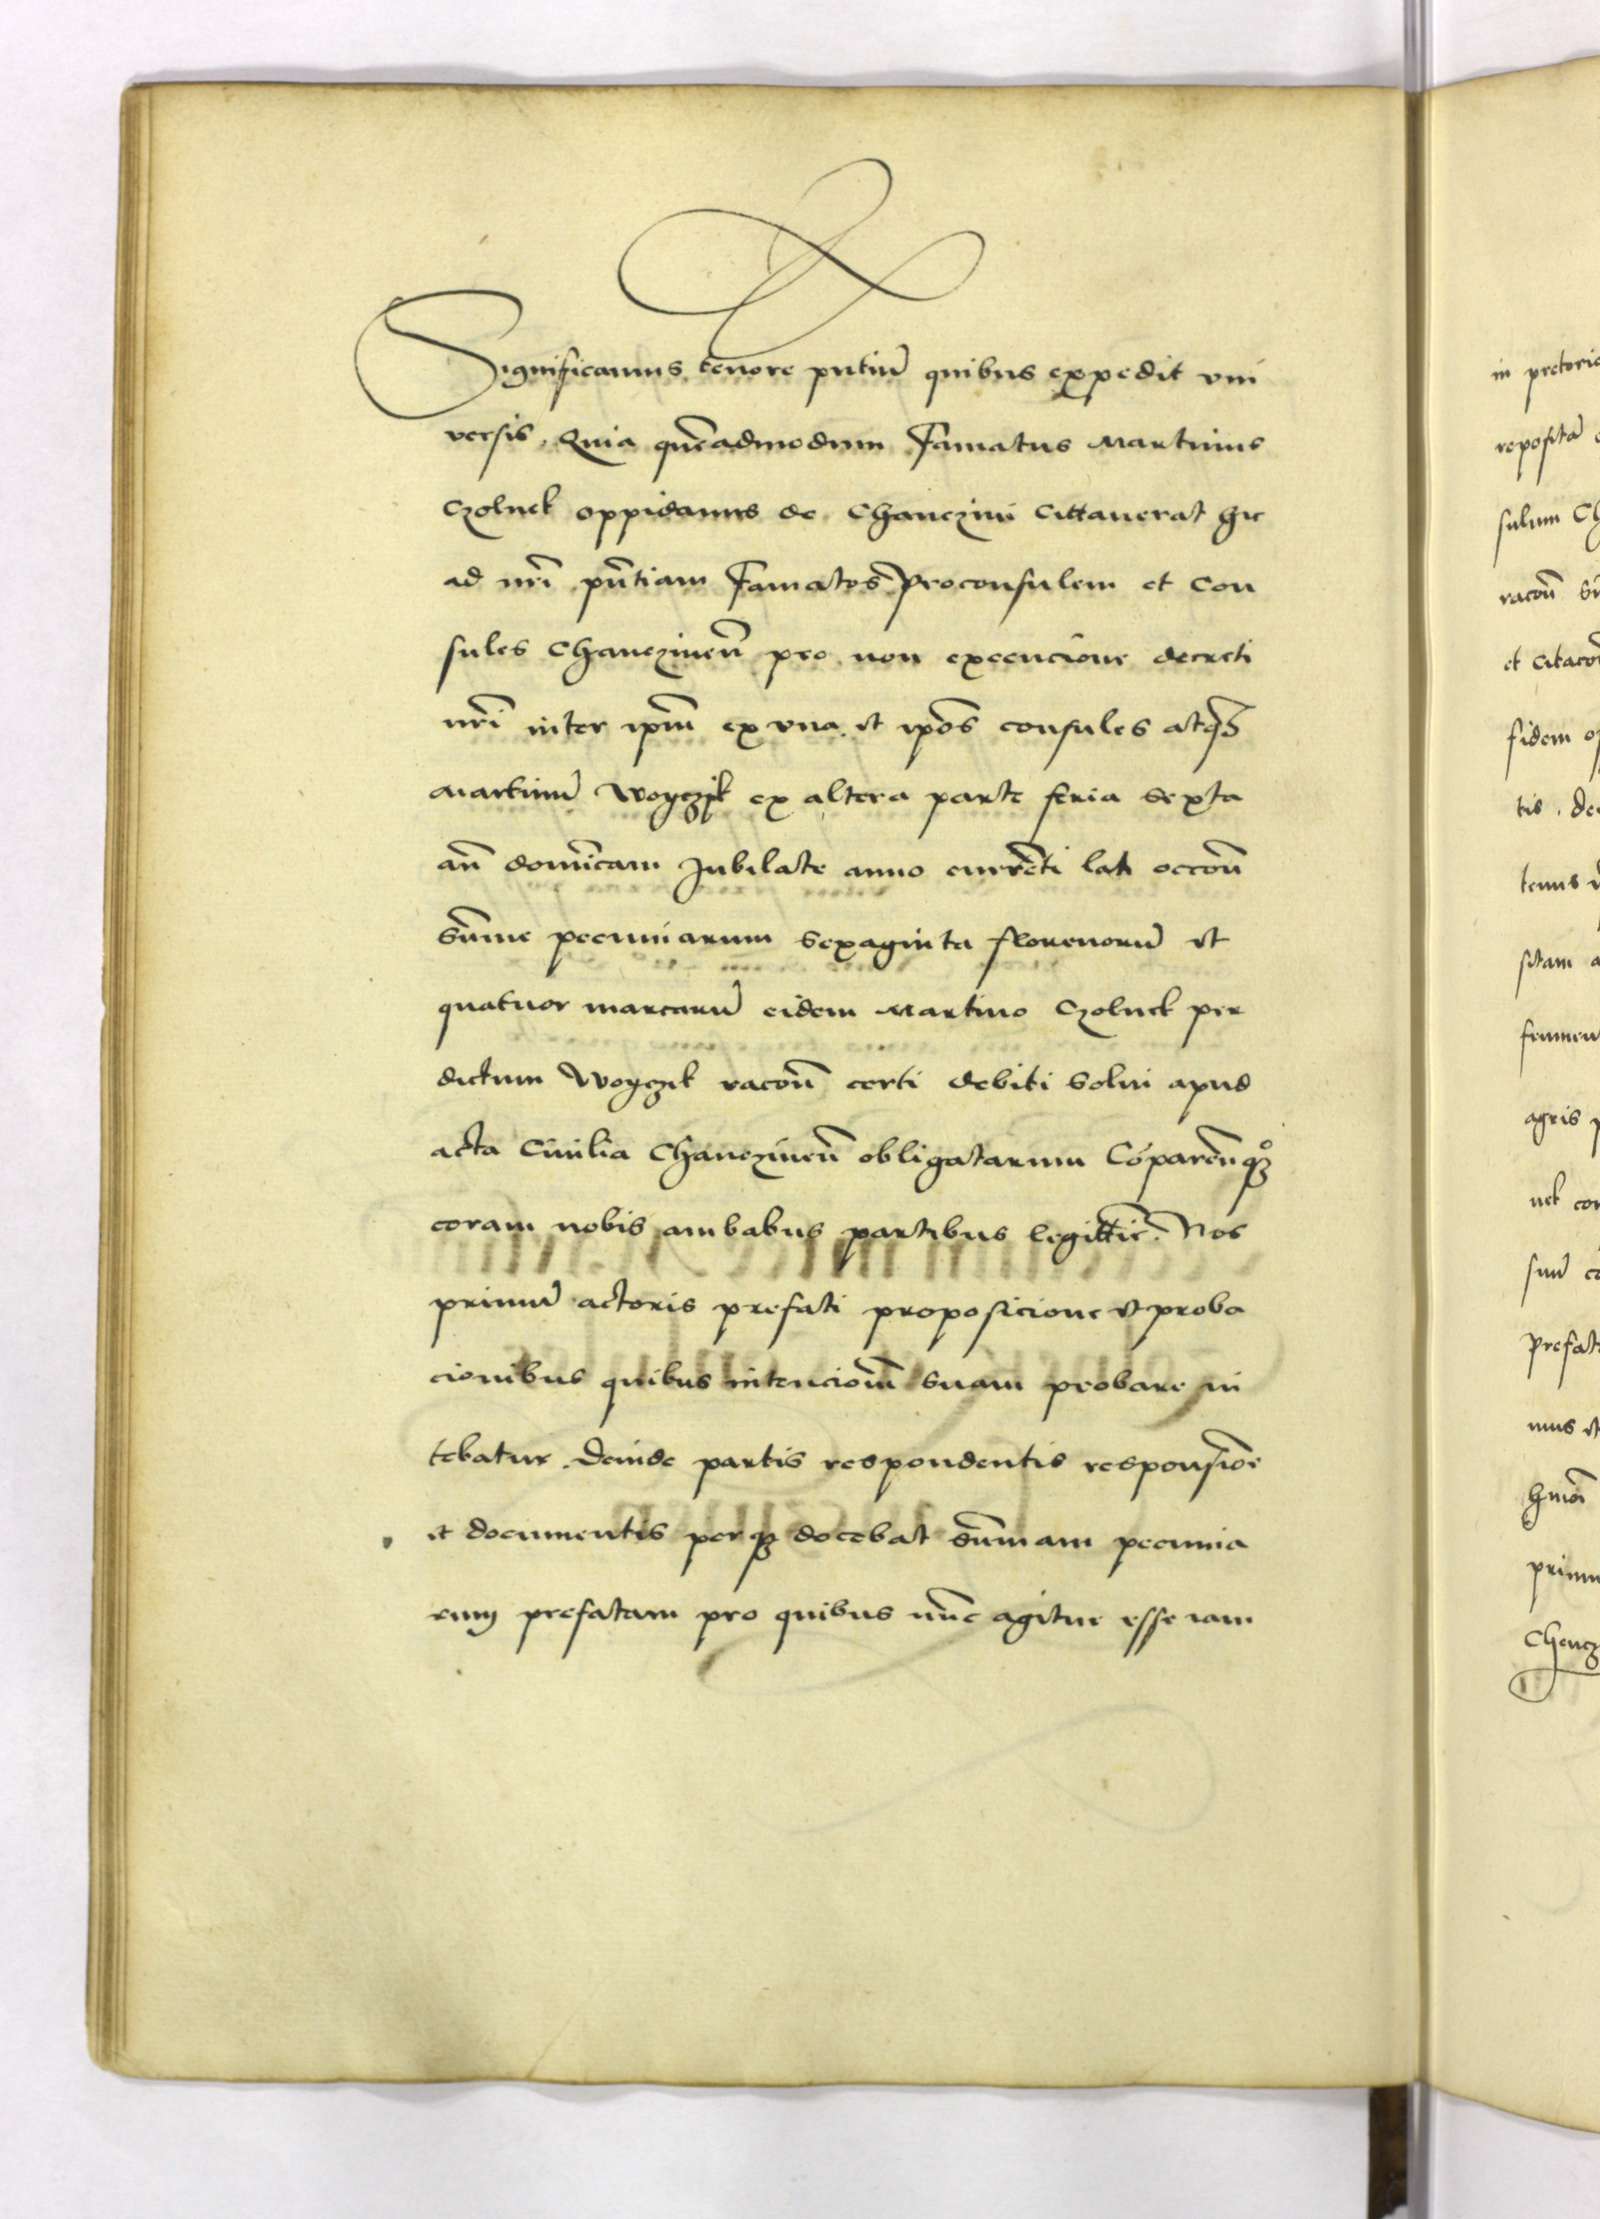 Significamus tenore pntiū quibus expedit vni
versis. Quia quēadmodum Famatus Martinus
Czolnek oppidanus de Chanczini Cittauerat hic
ad nrī pn̄tiam Famatos Proconsulem et Con
sules Chanczinen̄ pro non execucione decreti
nrī inter ipm̄ ex vna et ipōs consules atq3
Martinū Woyczik ex altera parte feria Sexta
an̄ domīcam Jubilate anno currēti lati occōn̄
Sūme pecuniarum Sexaginta florenorū et
quatuor marcarū eidem Martino Czolnek per
dictum Woyczik racōn̄ certi debiti Solui apud
acta Ciuilia Chanczinen̄ obligatarum Cōparen̄
coram nobis ambabus partibus legittie. Nos
primū actoris prefati proposicione et proba
cionibus quibus intenciōm̄ suam probare ni
tebatur. Deinde partis respondentis responsiōe
et documentis per q3 docebat Sūmam pecunia
rum prefatam pro quibus nūc agitur esse iam
in pretorio
reposita
sulum
racōn̄
et Citacōn̄
fidem
tis.
tenus
sitam
agris
Prefat
mus et